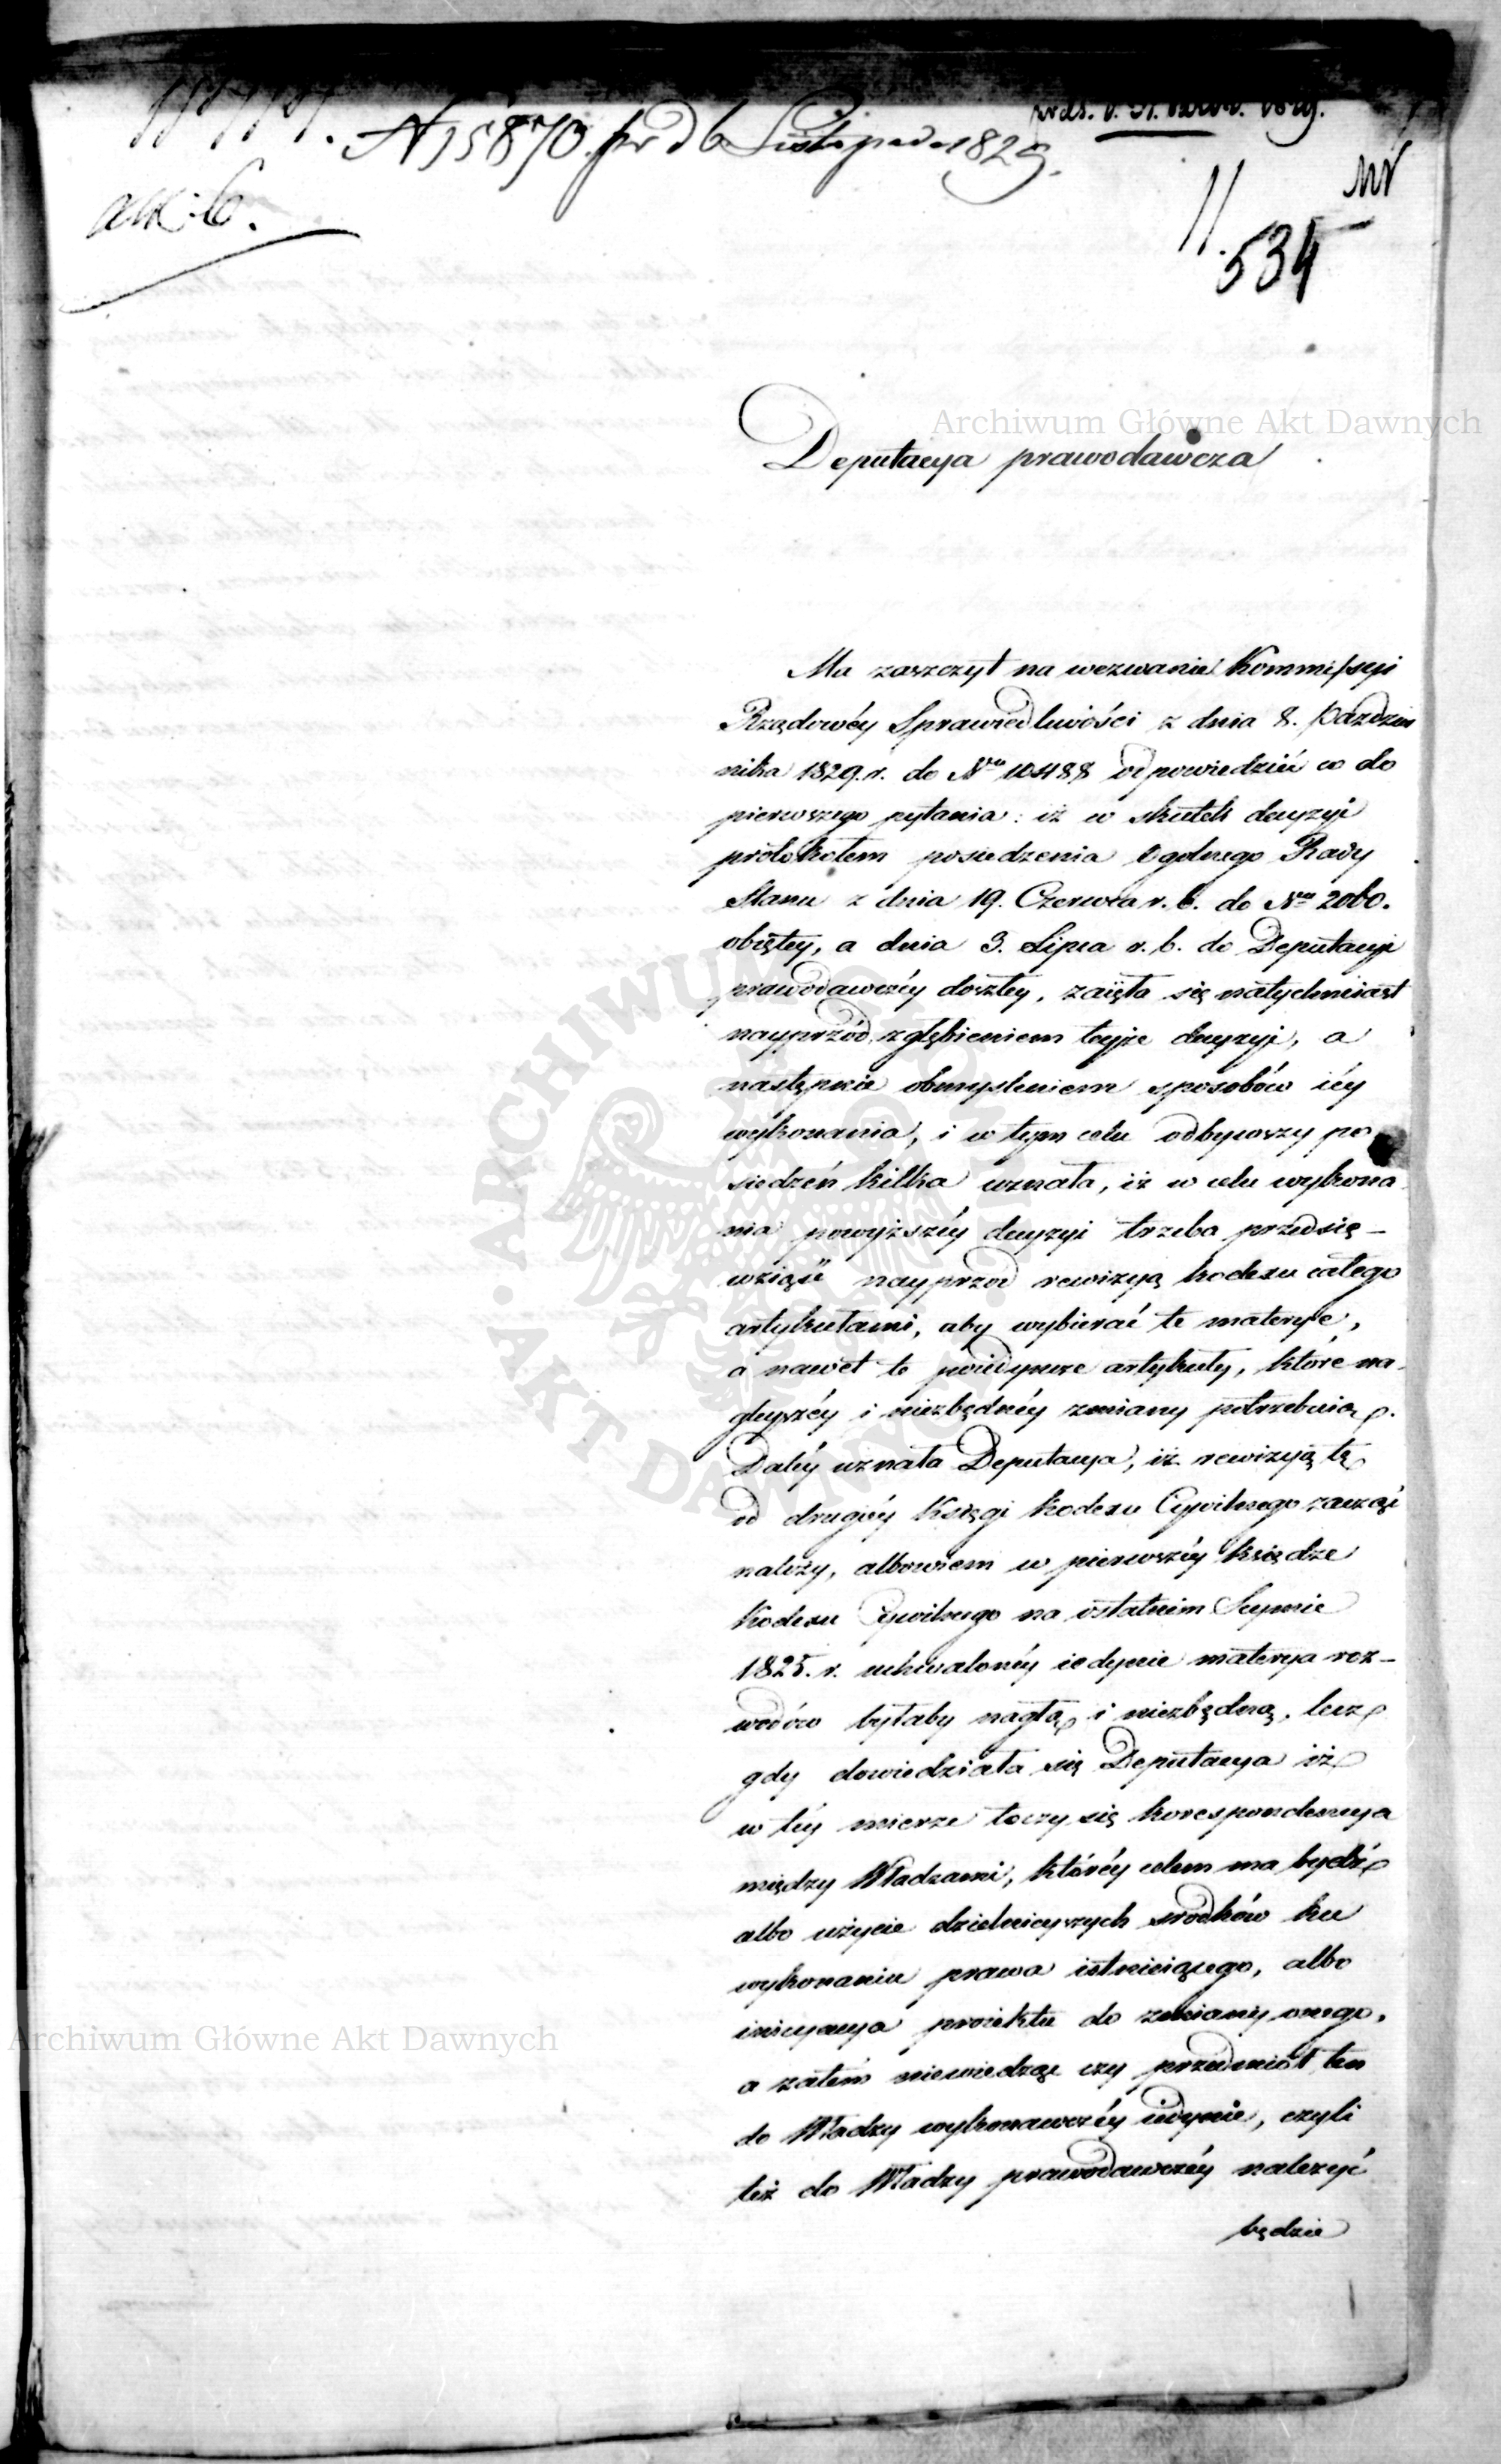 N 15870 pr d 6 Listopada 1829.
11.
534
Archiwum Główne Akt Dawnych
Deputacya prawodawcza
Ma zaszczyt na wezwanie Kommissyi
Rządowéy Sprawiedliwości z dnia 8. Paździer
nika 1829. r. do Nro 10488 odpowiedzieć co do
pierwszego pytania: iż w skutek decyzyi
protokołem posiedzenia Ogolnego Rady
Stanu z dnia 19. Czerwca r. b. do Nro 2060.
obiętey, a dnia 3. Lipca r. b. do Deputacyi
prawodawczéy doszłey, zaięła się natychmiast
nayprzód zgłębieniem teyże decyzyi, a
następnie obmysleniem sposobów iéy
wykonania, i w tym celu odbywszy po
siedzeń kilka uznała, iż w celu wykona
nia powyższéy decyzyi trzeba przedsię-
wziąść nayprzód rewizyą kodexu całego
artykułami, aby wybierać te materye,
a nawet te poiedyncze artykuły, które na
glejszéy i niezbędnéy zmiany potrzebuią.
Daléy uznała Deputacya, iż rewizyą tę
od drugiéy Księgi kodexu Cywilnego zacząć
należy, albowiem w pierwszéy księdze
Kodexu Cywilnego na ostatnim Seymie
1825. r. uchwalonéy iedynie materya roz-
wodów byłaby nagłą i niezbędną, lecz
gdy dowiedziała się Deputacya iż
w téy mierze toczy się korespondencya
między Władzami, któréy celem ma bydź
albo użycie dzielnieyszych srodków ku
wykonaniu prawa istnieiącego, albo
inicyacya proiektu do zmiany onego,
a zatém niewiedząc czy przedmiot ten
do Władzy wykonawczéy iedynie, czyli
też do Władzy prawodawczéy należyć
będzie
Archiwum Główne Akt Dawnych
ARCHIWUM GŁÓWNE
AKT DAWNYCH